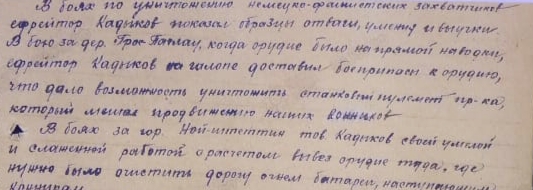 В боях по уничтожению немецко-фашистских захватчиков
ефрейтор Кадыков показал образцы отваги, умения и выучки.
В бою за дер. Грос-, когда орудие было на прямой наводки,
ефрейтор Кадыков на галопе доставил боеприпасы к орудию,
что дало возможность уничтожить станковый пулемет пр-ка,
который мешал продвижению наших конников
В боях за гор. Ной-штеттин тов. Кадыков своей умелой
и слаженной работой с расчетом вывез орудие туда, где
нужно было очистить дорогу огнем батареи, наступающим
конникам